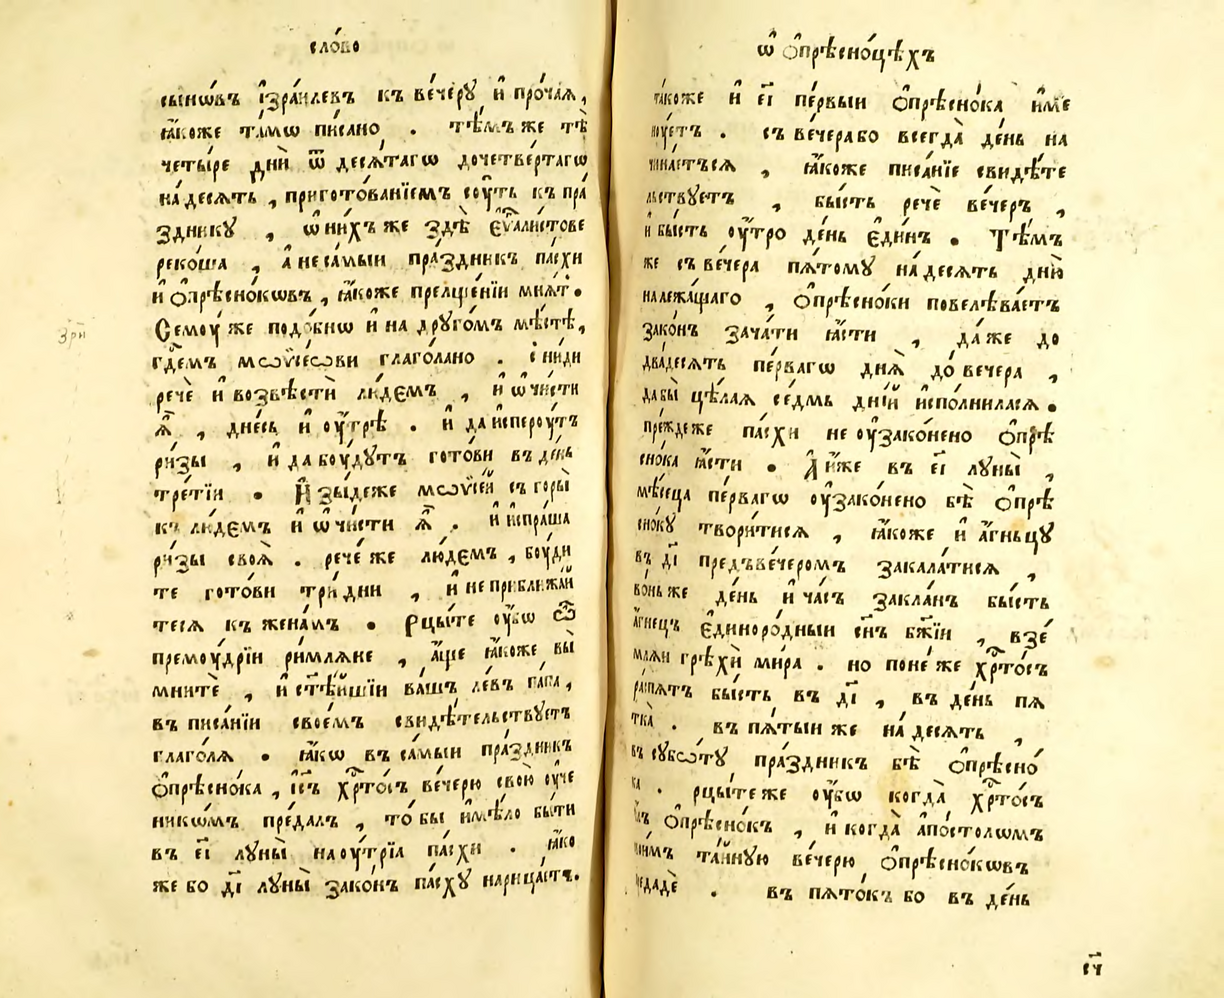 сло́во
сынѡвъ і҆зра́илевъ къ ве́черꙋ и҆ про́чаѧ,
ꙗ҆́коже та́мѡ пи́сано . тѣ́мъ же тѣ
четы́ре дни̑ ѿ десѧ́тагѡ до четве́ртагѡ
на́десѧть , приготова́нїемъ сѹ́ть къ пра́
здникꙋ , ѡ҆ ни́хъ же здѣ̀ є҆ѵⷢ҇али́стове
реко́ша , а҆ не са́мыи пра́здникъ па́схи
и҆ ѻ҆прѣсно́кѡвъ , ꙗ҆́коже преле́щенїи мнѧ́т.
Семѹ́ же подо́бнѡ и҆ на дрꙋго́мъ мѣ́стѣ,
гдⷭ҇емъ мѡѷсе́ѡви глаго́лано . сни́ди
речѐ и҆ возвѣстѝ лю́демъ , и҆ ѡ҆чи́сти
ѧ҆̀ , дне́сь и҆ ѹ҆́трѣ . и҆ да и҆сперѹ́тъ
ри́зы , и҆ да бѹ́дѹтъ гото́ви въ де́нь
тре́тїи . И҆ зы́де же мѡѷсе́й съ горы̀
къ лю́демъ и҆ ѡ҆чи́сти ѧ҆̀ . и҆ и҆спра́ша
ри́зы своѧ̀ . рече́ же лю́демъ , бѹ́ди
те гото́ви три́ дни , и҆ не приближа́й
тесѧ къ жена́мъ . Рцы́те ѹ҆́бѡ ѽ
премѹ́дрїи ри́млѧне , а҆́ще ꙗ҆́коже вы̀
мнитѐ , и҆ ст҃ѣ́йшїи ва́шъ ле́въ па́па ,
въ писа́нїи свое́мъ свидѣ́тельствꙋетъ
глаго́лѧ . ꙗ҆́кѡ въ са́мыи пра́здникъ
ѻ҆прѣсно́ка , і҆с҃ъ хрⷭ҇то́съ ве́черю свою̀ ѹ҆че
никѡ́мъ пре́далъ , то́ бы и҆мѣ́ло бы́ти
въ є҃і лꙋны̀ на ѹ҆́трїѧ па́схи . ꙗ҆́ко
же бо д҃і лꙋны̀ зако́нъ па́схꙋ нарица́етъ.
ѡ҆ ѻ҆прѣсно́цѣхъ
та́коже и҆ є҃і пе́рвыи ѻ҆прѣсно́ка и҆ме
нѹ́етъ . съ ве́чера бо всегда̀ де́нь на
чина́етъсѧ , ꙗ҆́коже писа́нїе свидѣ́те
льствꙋетъ , бы́сть речѐ ве́черъ ,
и҆ бы́сть ѹ҆́тро де́нь є҆ди́нъ . Тѣ́мъ
же съ ве́чера пѧ́томꙋ на́десѧть дню̀
належа́щаго , ѻ҆прѣсно́ки повелѣва́етъ
зако́нъ зача́ти ꙗ҆́сти , да́же до
два́десѧть пе́рвагѡ днѧ̀ до́ вечера ,
да бы̀ цѣ́лаѧ се́дмь дні́й и҆спо́лниласѧ .
пре́жде же па́схи не ѹ҆зако́нено ѻ҆прѣ
снока ꙗ҆́сти . А и҆́же въ є҃і лꙋны̀ ,
мѣ́сеца пе́рвагѡ ѹ҆зако́нено бѣ̀ ѻ҆прѣ
сно́кꙋ твори́тисѧ , ꙗ҆́коже и҆ а҆́гньцꙋ
въ д҃і предъве́черомъ закала́тисѧ ,
во́ньже де́нь и҆ ча́съ закла́нъ бы́сть
а҆́гнецъ є҆диноро́дныи сн҃ъ бж҃їи , взе́
млѧи грѣхѝ ми́ра . но поне́ же хрⷭ҇то́съ
ра́спѧтъ бы́сть въ д҃і , въ де́нь пѧ
тка̀ . въ пѧ́тыи же на́десѧть ,
въ сꙋбѡ́тꙋ пра́здникъ бѣ̀ ѻ҆прѣсно́
ка . рцы́те же ѹ҆́бѡ когда̀ хрⷭ҇то́съ
ѻ҆прѣсно́къ , и҆ когда̀ а҆по́столѡмъ
та́йнꙋю ве́черю ѻ҆прѣсно́кѡвъ
. въ пѧто́къ бо въ де́нь